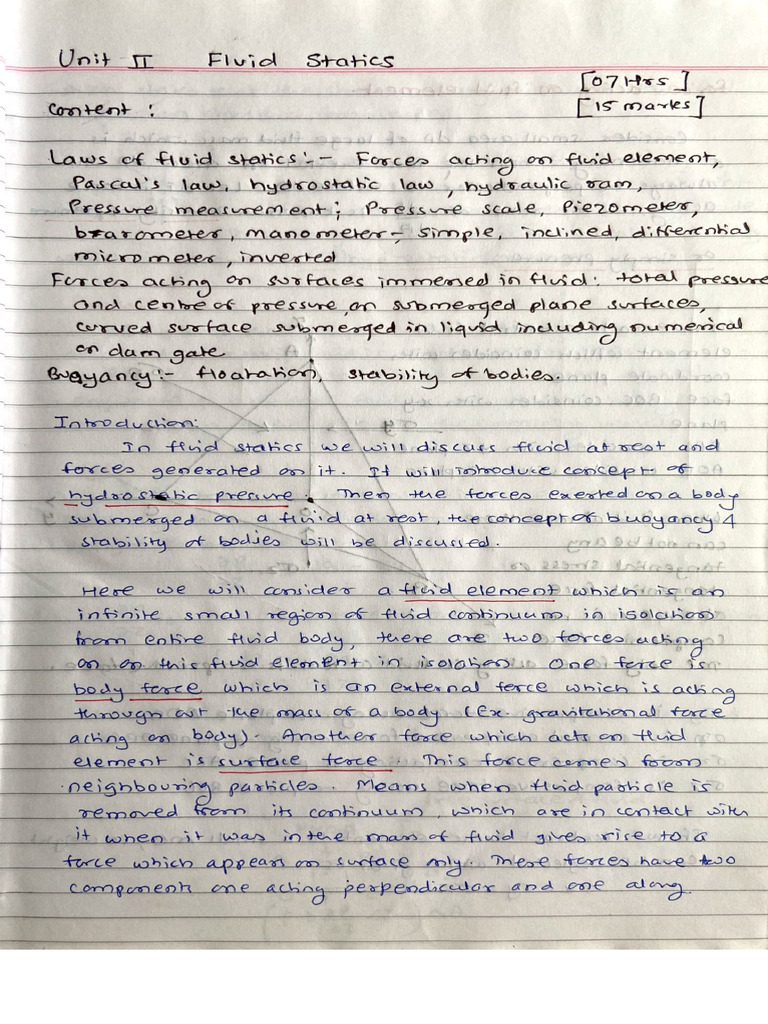 Unit II Fluid Statics
[07 Hrs]
Content : [15 marks]
Laws of fluid statics:- Forces acting on fluid element,
Pascal's law, hydrostatic law, hydraulic ram,
Pressure measurement; Pressure scale, Piezometer,
barometer, manometer- simple, inclined, differential
micrometer, inverted
Forces acting on surfaces immersed in fluid: total pressure
and centre of pressure, on submerged plane surfaces,
curved surface submerged in liquid including numerical
on dam gate
Buoyancy:- floatation, stability of bodies.
Introduction:
In fluid statics we will discuss fluid at rest and
forces generated on it. It will introduce concept of
hydrostatic pressure. Then the forces exerted on a body
submerged on a fluid at rest, the concept of buoyancy &
stability of bodies will be discussed.
Here we will consider a fluid element which is an
infinite small region of fluid continuum in isolation
from entire fluid body, there are two forces acting
on on this fluid element in isolation. One force is
body force which is an external force which is acting
through out the mass of a body (Ex. gravitational force
acting on body). Another force which acts on fluid
element is surface force. This force comes from
neighbouring particles. Means when fluid particle is
removed from its continuum, which are in contact with
it when it was in the mass of fluid gives rise to a
force which appears on surface only. These forces have two
components one acting perpendicular and one along